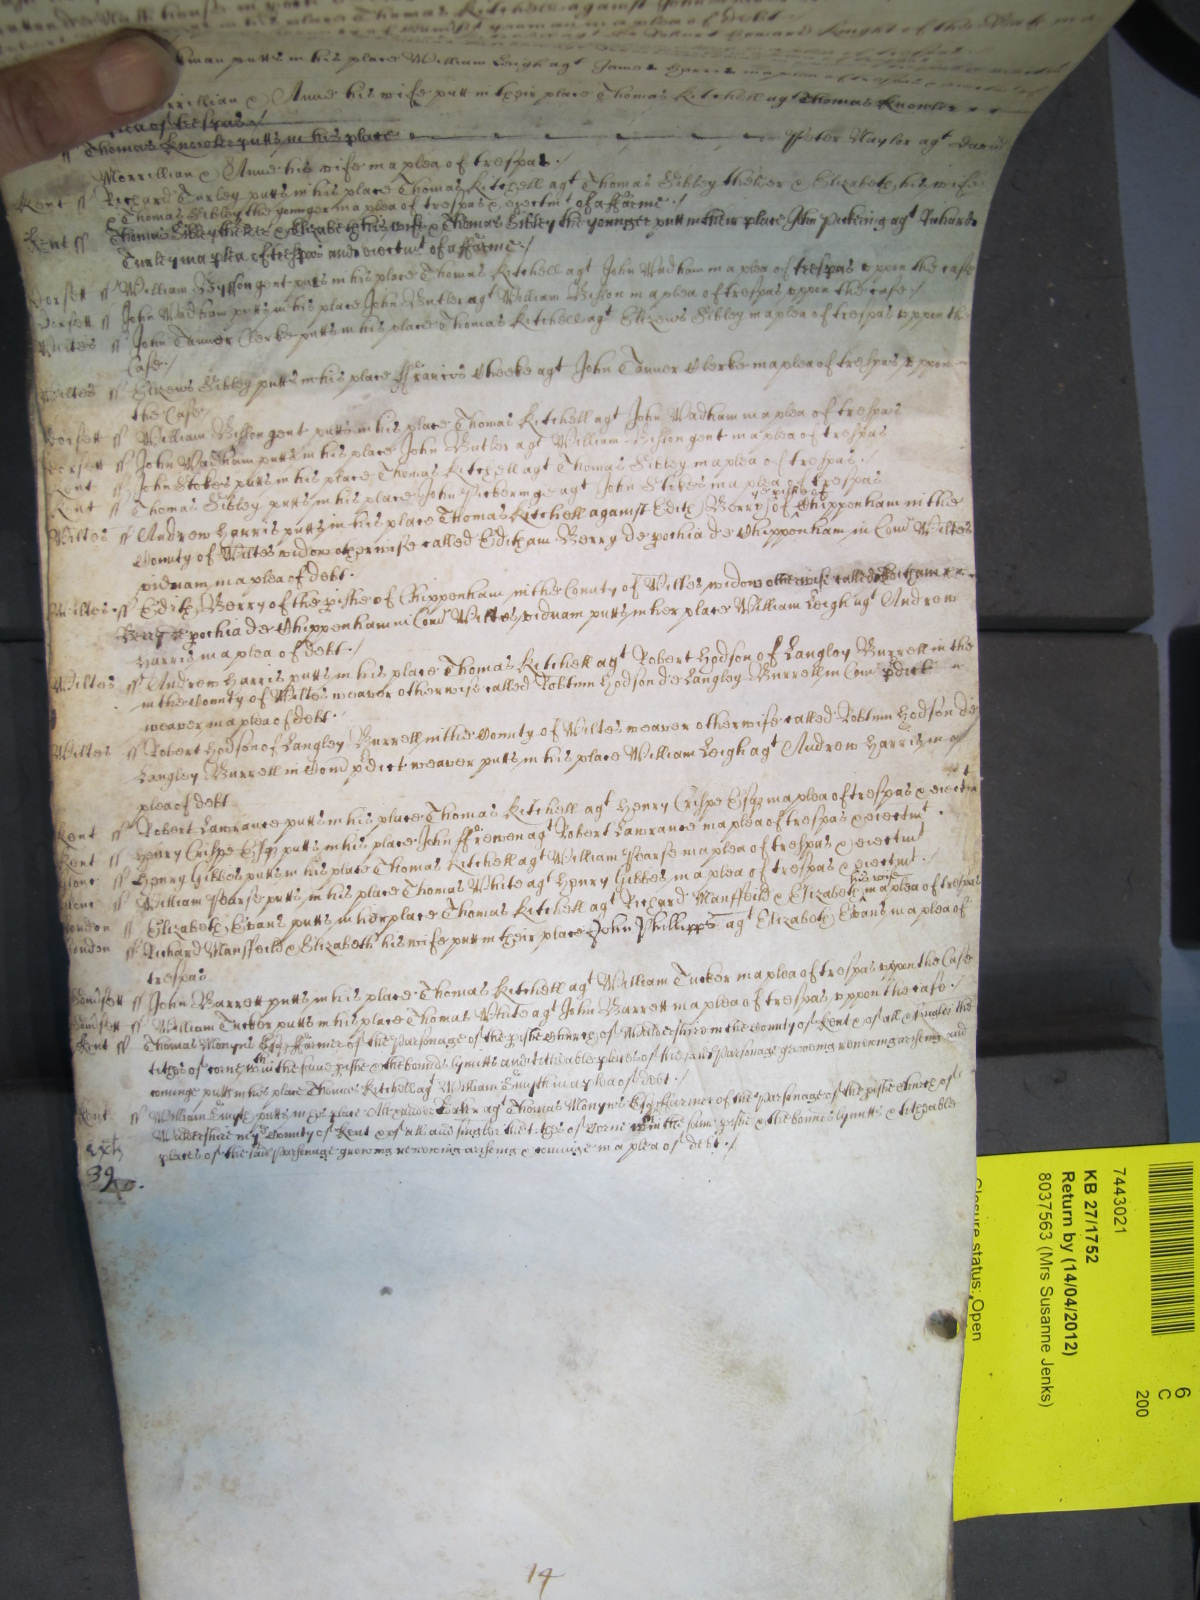 puttes in his place Thomas Kitchell against John
yeoman in a plea of debt
puttes in his place William Leigh agt James Harris in a plea of trespas
Morrillian & Anne his wife putt in their place Thomas Kitchell agt Thomas Knowler
plea of trespas /
ss Thomas Knowler putts in his place Peter Naylor agt David
Morrillian & Anne his wife in a plea of trespas ./
Kent ss Richard Turley putts in his place Thomas Kitchell agt Thomas Sibley the elder & Elizabeth his wife
& Thomas Sibley the younger in a plea of trespas & eiectmt of a ffarme ./
Kent ss Thomas Sibley the elder & Elizabeth his wife & Thomas Sibley the younger putt in their place John Pickering agt Richard
Turley in a plea of trespas and eiectmt of a ffarme ./
Dorsett ss William Bysson gent putts in his place Thomas Kitchell agt John Wadham in a plea of trespas uppon the case
Dorsett ss John Wadham putts in his place John Butler agt William Bisson in a plea of trespas uppon the case ./
Wiltes ss John Tanner Clerke putts in his place Thomas Kitchell agt Elizeus Sibley in a plea of trespas uppon the
Case ./
Wiltes ss Elizeus Sibley putts in his place ffrancis Cheeke agt John Tanner Clerke in a plea of trespas uppon
the Case
Dorsett ss William Bisson gent putts in his place Thomas Kitchell agt John Wadham in a plea of trespas
Dorsett ss John Wadham putts in his place John Butler agt William Bisson gent in a plea of trespas
Kent ss John Stokes putts in his place Thomas Kitchell agt Thomas Sibley in a plea of trespas ./
Kent ss Thomas Sibley putts in his place John Pickeringe agt John Stokes in a plea of trespas
Wiltes ss Andrew Harris putts in his place Thomas Kitchell against Edith Berry of ye pishe of Chippenham in the
County of Wiltes widow otherwise called Editham Berry de pochia de Chippenham in Com Wiltes
viduam in a plea of debt .
Wiltes ss Edith Berry of the pishe of Chippenham in the County of Wiltes widow otherwise called Editham
Berry de pochia de Chippenham in Com Wiltes viduam putts in her place William Leigh agt Andrew
Harris in a plea of debt ./
Wiltes ss Andrew Harris putts in his place Thomas Kitchell agt Robert Hodson of Langley Burrell in the
in the County of Wiltes weaver otherwise called Robtum Hodson de Langley Burrell in Com pdict
weaver in a plea of debt .
Wiltes ss Robert Hodson of Langley Burrell in the County of Wiltes weaver otherwise called Robtum Hodson de
Langley Burrell in Com pdict weaver putts in his place William Leigh agt Andrew Harris in a
plea of debt
Kent ss Robert Lawrance putts in his place Thomas Kitchell agt Henry Crispe Esqr in a plea of trespas & eiectmt
Kent ss Henry Crispe Esqr putts in his place John ffrewen agt Robert Lawrance in a plea of trespas & eiectmt .
Glouc ss Henry Gibbes putts in his place Thomas Kitchell agt William Pearse in a plea of trespas & eiectmt
Glouc ss William Pearse putts in his place Thomas White agt Henry Gibbes in a plea of trespas & eiectmt .
London ss Elizabeth Evans putts in her place Thomas Kitchell agt Richard Mansfeild & Elizabeth his wife in a plea of trespas
London ss Richard Mansfeild & Elizabeth his wife putt in their place John Phillipps agt Elizabeth Evans in a plea of
trespas
Somsett ss John Barrett putts in his place Thomas Kitchell agt William Tucker in a plea of trespas uppon the Case
Somsett ss William Tucker putts in his place Thomas White agt John Barrett in a plea of trespas uppon the case .
Kent ss Thomas Monyns Esqr ffarmer of the Parsonage of the pishe Church of Waldershire in the County of Kent & of all & singler the
tithes of corne wthin the same pishe & the bounds lymitts and titheable places of the said Parsonage groweing reneweing ariseing and
cominge putts in his place Thomas Kitchell agt William Smyth in a plea of debt ./
Kent ss William Smyth putts in his place Alexander agt Thomas Monyns Esqr ffarmer of the Parsonage of the pishe Church of
Waldershire in ye County of Kent & of all and singler the tithes of Corne wthin the same pishe & the bounds lymitts & titheable
places of the said Parsonage groweing reneweing ariseing & cominge in a plea of debt ./
39
14
7443021
KB 27/1752
Return by (14/04/2012)
8037563 (Mrs Susanne Jenks)
Closure status: Open
6
C
200